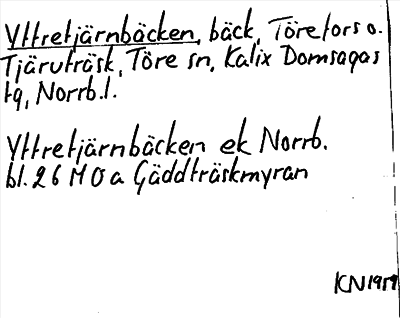 Yttretjärnbäcken, bäck, Törefors o.
Tjäruträsk, Töre sn, Kalix Domsagas
tg, Norrb.l.
Yttretjärnbäcken ek Norrb.
bl. 26 M O a Gäddträskmyran
KN 1959